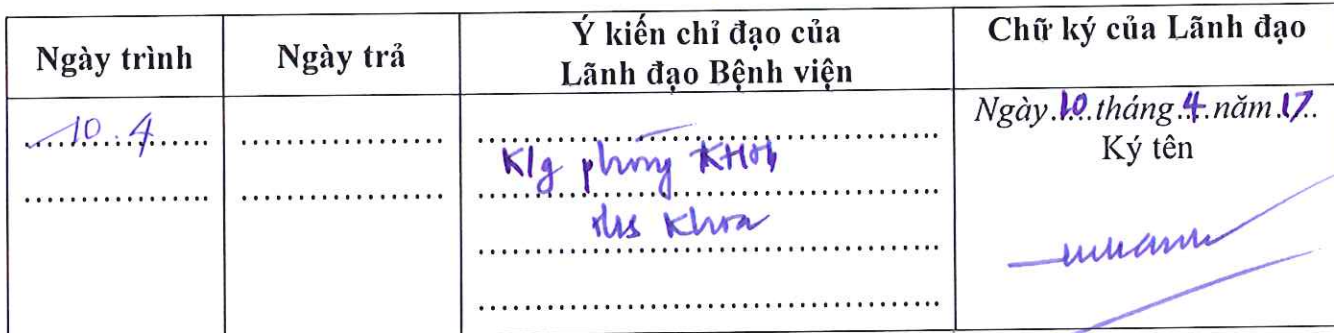 Ngày trình
Ngày trả
Ý kiến chỉ đạo của
Lãnh đạo Bệnh viện
Chữ ký của Lãnh đạo
10.4
K/g phòng KHTH
Khoa
Ngày 10 tháng 4 năm 17
Ký tên